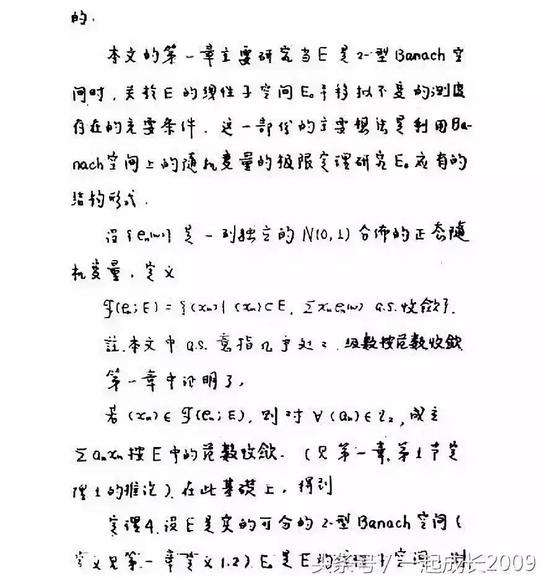 的.
本文的第一章主要研究当E是2-型Banach空
间时,关于E的线性子空间E₀平移拟不变的测度
存在的充要条件.这一部份的主要想法是利用Ba-
nach空间上的随机变量的极限定理研究E₀应有的
结构形式.
设{eₙ(w)}是一列独立的N(0,1)分佈的正态随
机变量,定义
𝓕(eₙ;E)={(xₙ)|(xₙ)⊂E, Σxₙeₙ(w) a.s.收敛}.
註.本文中a.s.意指几乎处处,级数按范数收敛
第一章中证明了,
若(xₙ)∈𝓕(eₙ;E),则对∀(aₙ)∈l₂,成立
Σaₙxₙ按E中的范数收敛.(见第一章,第1节定
理1的推论).在此基礎上,得到
定理4.设E是实的可分的2-型Banach空间(
定义见第一章定义1.2).E₀是E的 空间
头条号/一起成长2009